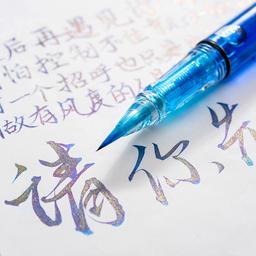 后再遇见
怕控制不住
一个招呼也
做有风度的
请你